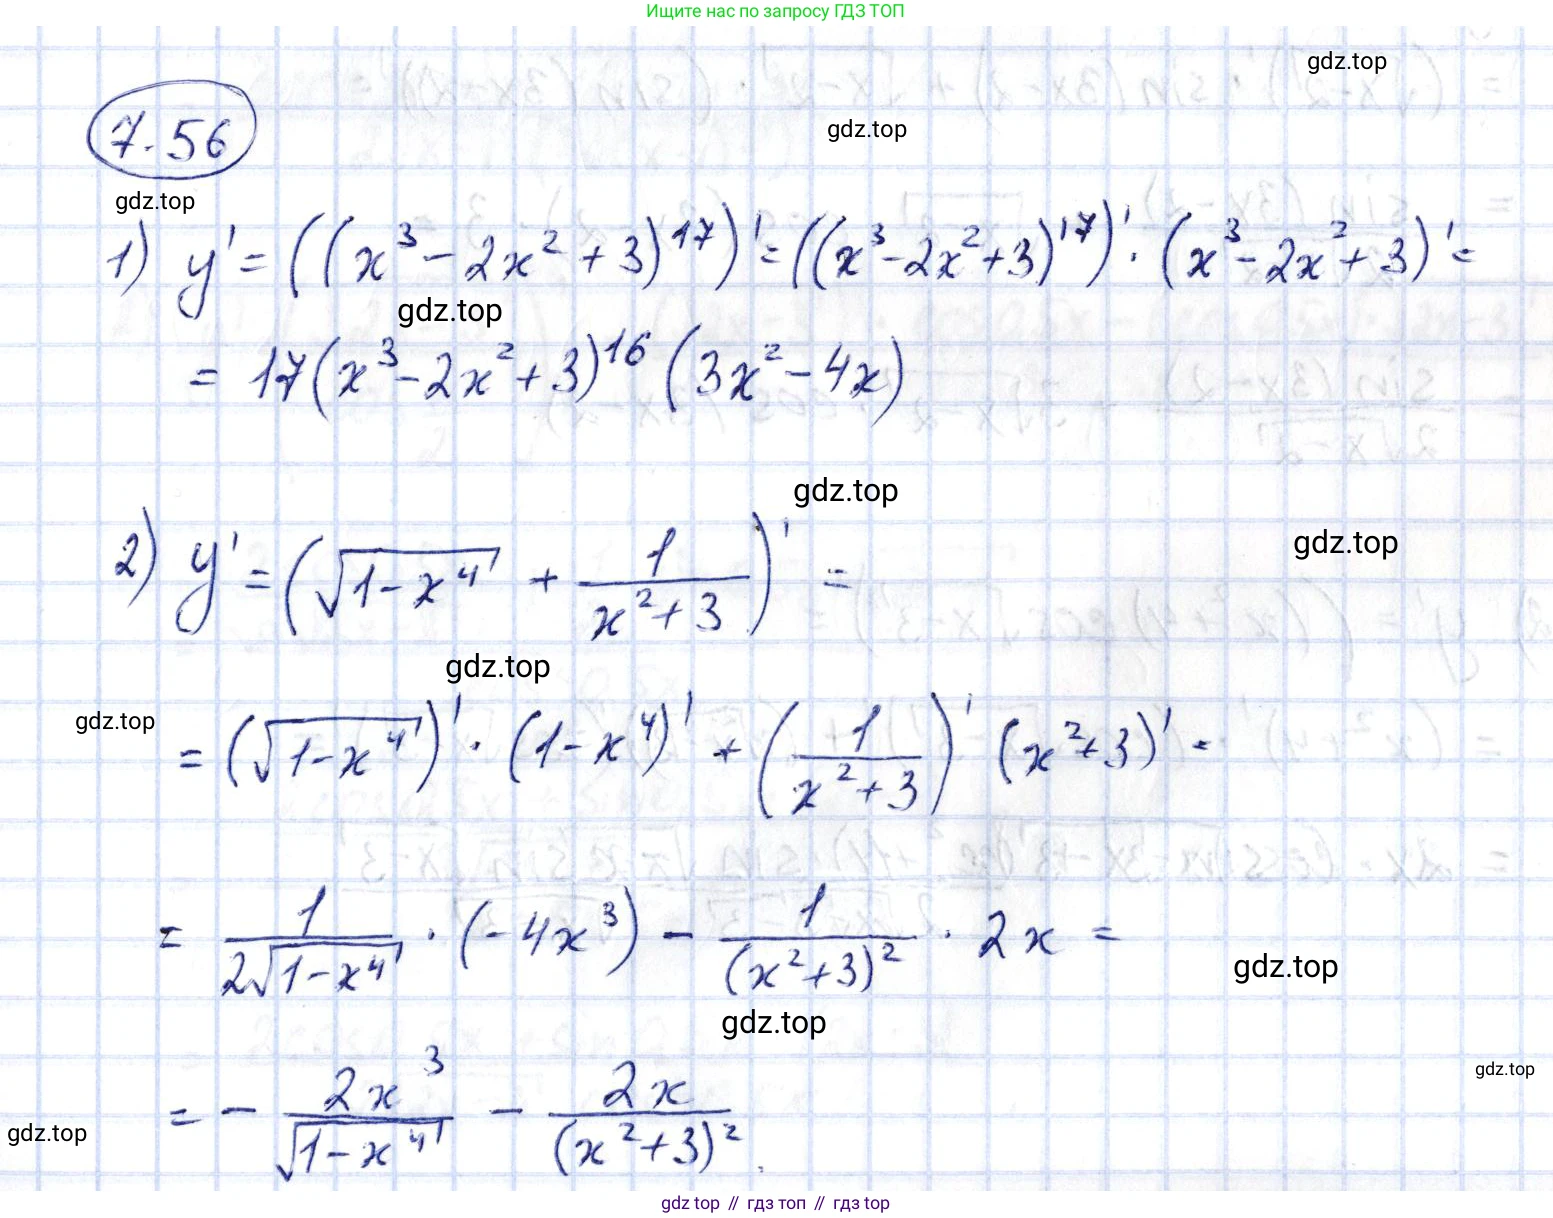 Ищите нас по запросу ГДЗ ТОП
gdz.top
gdz.top
7.56
gdz.top
1) y' = ((x³ - 2x² + 3)¹⁷)' = ((x³ - 2x² + 3)¹⁷)' · (x³ - 2x² + 3)' =
gdz.top
= 17(x³ - 2x² + 3)¹⁶ (3x² - 4x)
gdz.top
gdz.top
2) y' = (√(1-x⁴) + 1/(x²+3))' =
gdz.top
gdz.top
= (√(1-x⁴))' · (1-x⁴)' + (1/(x²+3))' (x²+3)' =
= 1/(2√(1-x⁴)) · (-4x³) - 1/(x²+3)² · 2x =
gdz.top
gdz.top
gdz.top
= - 2x³/√(1-x⁴) - 2x/(x²+3)².
gdz.top
gdz top // гдз топ // гдз top